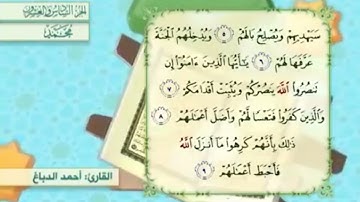 الجزء السادس والعشرون
محمد
سَيَهْدِيهِمْ وَيُصْلِحُ بَالَهُمْ ۝٥ وَيُدْخِلُهُمُ الْجَنَّةَ
عَرَّفَهَا لَهُمْ ۝٦ يَٰٓأَيُّهَا الَّذِينَ ءَامَنُوٓا۟ إِن
تَنصُرُوا۟ اللَّهَ يَنصُرْكُمْ وَيُثَبِّتْ أَقْدَامَكُمْ ۝٧
وَالَّذِينَ كَفَرُوا۟ فَتَعْسًا لَّهُمْ وَأَضَلَّ أَعْمَٰلَهُمْ ۝٨
ذَٰلِكَ بِأَنَّهُمْ كَرِهُوا۟ مَآ أَنزَلَ اللَّهُ
فَأَحْبَطَ أَعْمَٰلَهُمْ ۝٩
القارئ: أحمد الدباغ